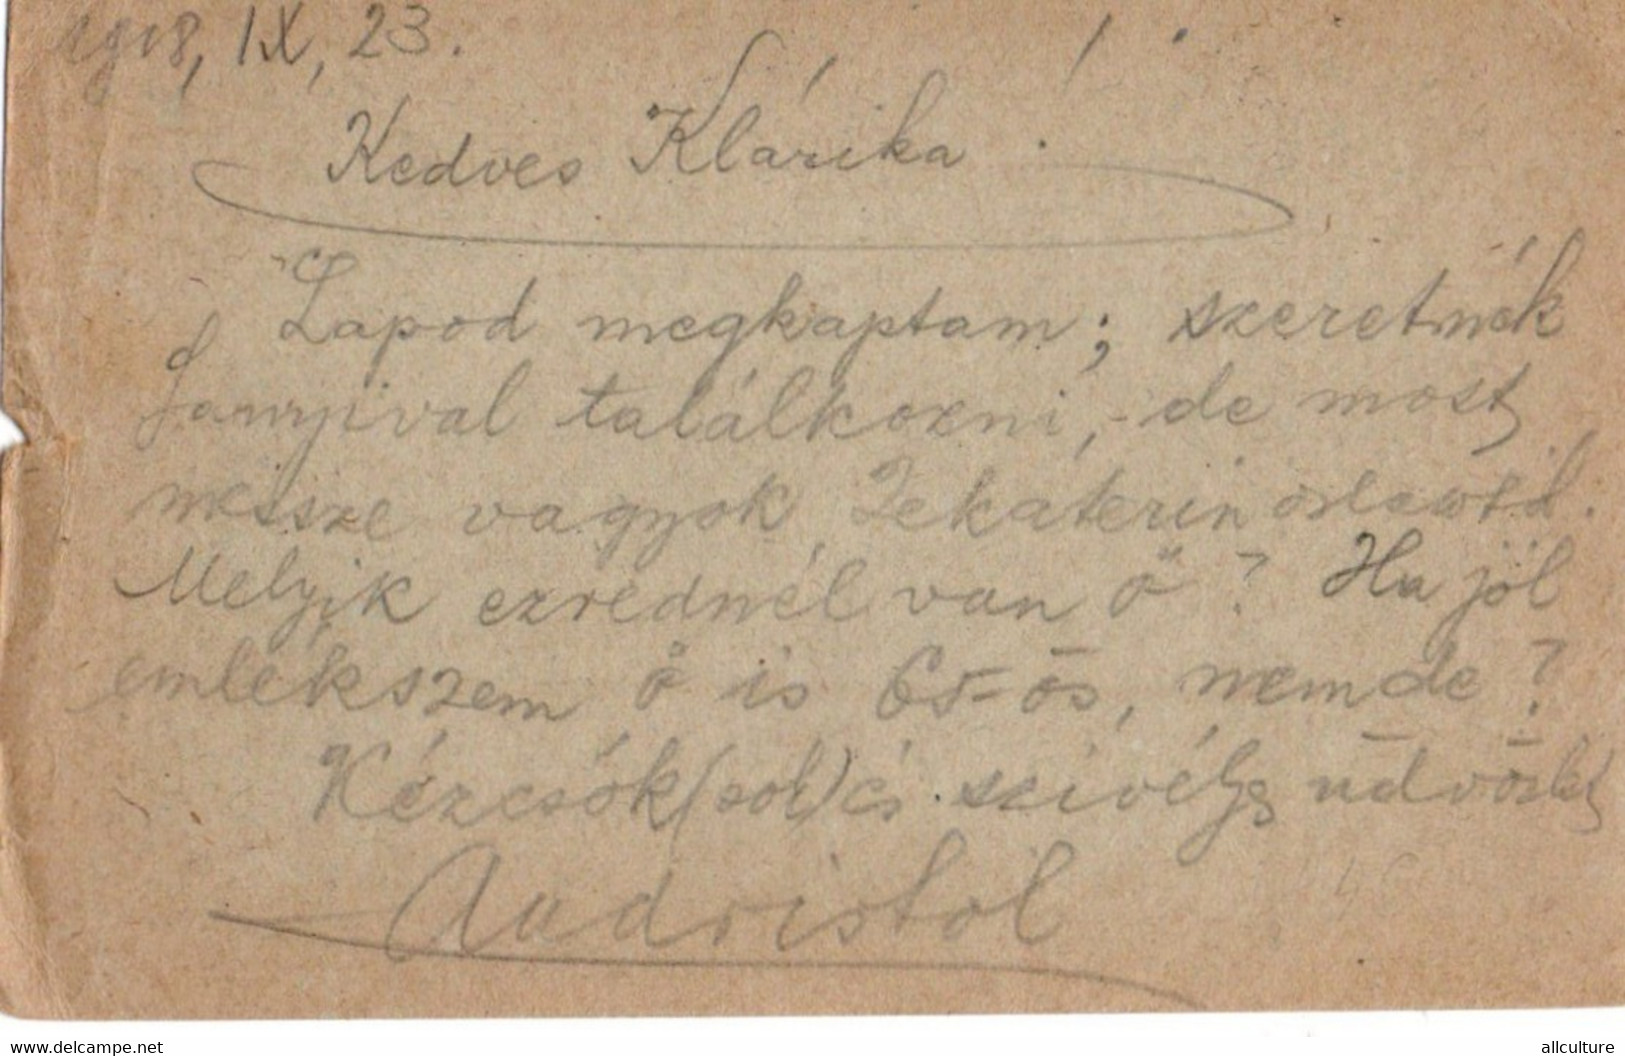 1918, IX, 23.
Kedves Klárika!
Lapod megkaptam; szeretnék
találkozni, de most
messze vagyok
Melyik ezrednél van ő? Ha jól
emlékszem ő is 65-ös, nemde?
Kézcsók(sol) és szivélyes
delcampe.net
allculture